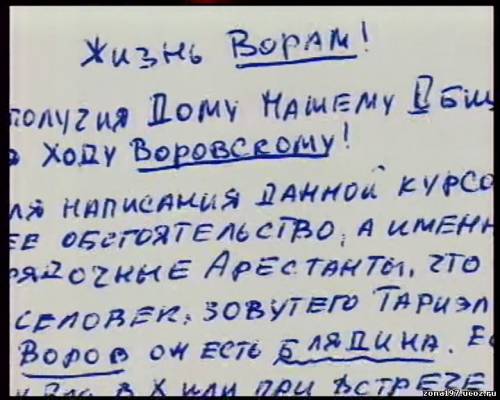 Жизнь Ворам!
получия Дому Нашему Общ
Ходу Воровскому!
ля написания данной курсо
ее обстоятельство, а именн
рядочные Арестанты, что
селовек, зовут его Тариэл
Воров он есть блядина. Е
в х или при встрече
zona197.ucoz.ru